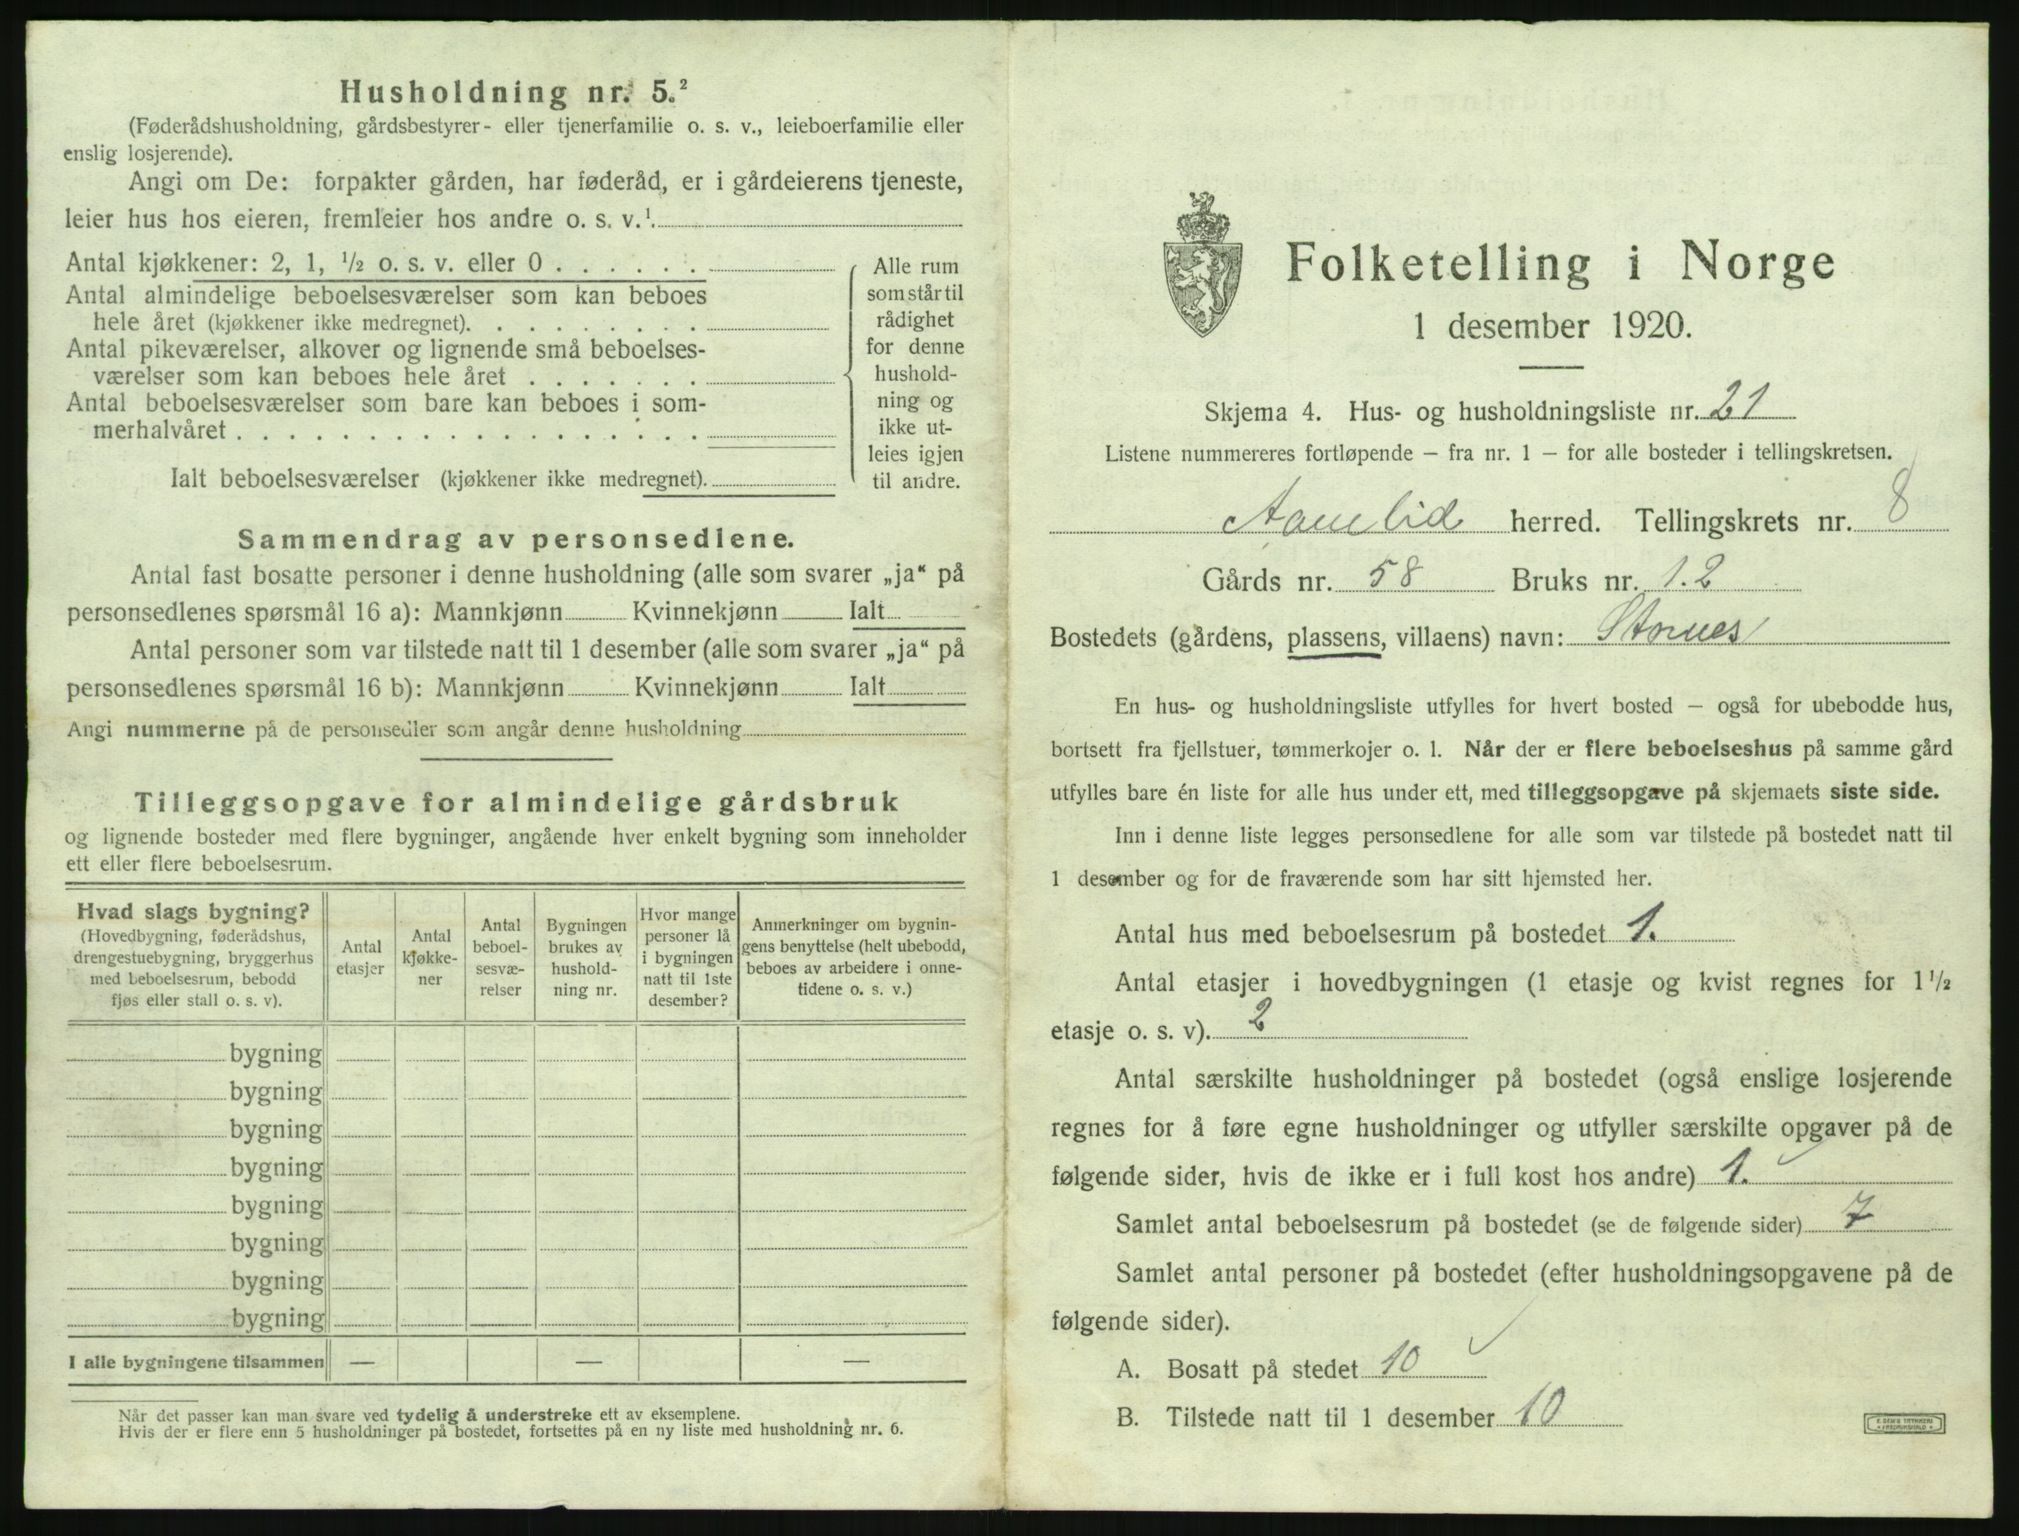 Husholdning nr. 5.²
(Føderådshusholdning, gårdsbestyrer- eller tjenerfamilie o. s. v., leieboerfamilie eller
enslig losjerende).
Angi om De: forpakter gården, har føderåd, er i gårdeierens tjeneste,
leier hus hos eieren, fremleier hos andre o. s. v.¹.
Antal kjøkkener: 2, 1, ½ o. s. v. eller 0 . . . . . .
Antal almindelige beboelsesværelser som kan beboes
hele året (kjøkkener ikke medregnet). . . . . . . . .
Antal pikeværelser, alkover og lignende små beboelses-
værelser som kan beboes hele året . . . . . . .
Antal beboelsesværelser som bare kan beboes i som-
merhalvåret . . . . . . . . . . . . . . . . . .
Ialt beboelsesværelser (kjøkkener ikke medregnet).
Alle rum
som står til
rådighet
for denne
hushold-
ning og
ikke ut-
leies igjen
til andre.
Sammendrag av personsedlene.
Antal fast bosatte personer i denne husholdning (alle som svarer „ja“ på
personsedlenes spørsmål 16 a): Mannkjønn Kvinnekjønn Ialt
Antal personer som var tilstede natt til 1 desember (alle som svarer „ja“ på
personsedlenes spørsmål 16 b): Mannkjønn Kvinnekjønn Ialt
Angi nummerne på de personsedler som angår denne husholdning
Tilleggsopgave for almindelige gårdsbruk
og lignende bosteder med flere bygninger, angående hver enkelt bygning som inneholder
ett eller flere beboelsesrum.
Hvad slags bygning?
(Hovedbygning, føderådshus,
drengestuebygning, bryggerhus
med beboelsesrum, bebodd
fjøs eller stall o. s. v).
Antal
etasjer
Antal
kjøkke-
ner
Antal
beboel-
sesvæ-
relser
Bygningen
brukes av
hushold-
ning nr.
Hvor mange
personer lå
i bygningen
natt til 1ste
desember?
Anmerkninger om bygnin-
gens benyttelse (helt ubebodd,
beboes av arbeidere i onne-
tidene o. s. v.)
bygning
bygning
bygning
bygning
bygning
bygning
bygning
bygning
I alle bygningene tilsammen — — —
Når det passer kan man svare ved tydelig å understreke ett av eksemplene.
Hvis der er flere enn 5 husholdninger på bostedet, fortsettes på en ny liste med husholdning nr. 6.
Folketelling i Norge
1 desember 1920.
Skjema 4. Hus- og husholdningsliste nr. 21
Listene nummereres fortløpende — fra nr. 1 — for alle bosteder i tellingskretsen.
Aamlid herred. Tellingskrets nr. 8
Gårds nr. 58 Bruks nr. 1.2
Bostedets (gårdens, plassens, villaens) navn: Stornes
En hus- og husholdningsliste utfylles for hvert bosted — også for ubebodde hus,
bortsett fra fjellstuer, tømmerkojer o. l. Når der er flere beboelseshus på samme gård
utfylles bare én liste for alle hus under ett, med tilleggsopgave på skjemaets siste side.
Inn i denne liste legges personsedlene for alle som var tilstede på bostedet natt til
1 desember og for de fraværende som har sitt hjemsted her.
Antal hus med beboelsesrum på bostedet 1.
Antal etasjer i hovedbygningen (1 etasje og kvist regnes for 1½
etasje o. s. v). 2
Antal særskilte husholdninger på bostedet (også enslige losjerende
regnes for å føre egne husholdninger og utfyller særskilte opgaver på de
følgende sider, hvis de ikke er i full kost hos andre) 1.
Samlet antal beboelsesrum på bostedet (se de følgende sider) 7
Samlet antal personer på bostedet (efter husholdningsopgavene på de
følgende sider).
A. Bosatt på stedet 10
B. Tilstede natt til 1 desember 10